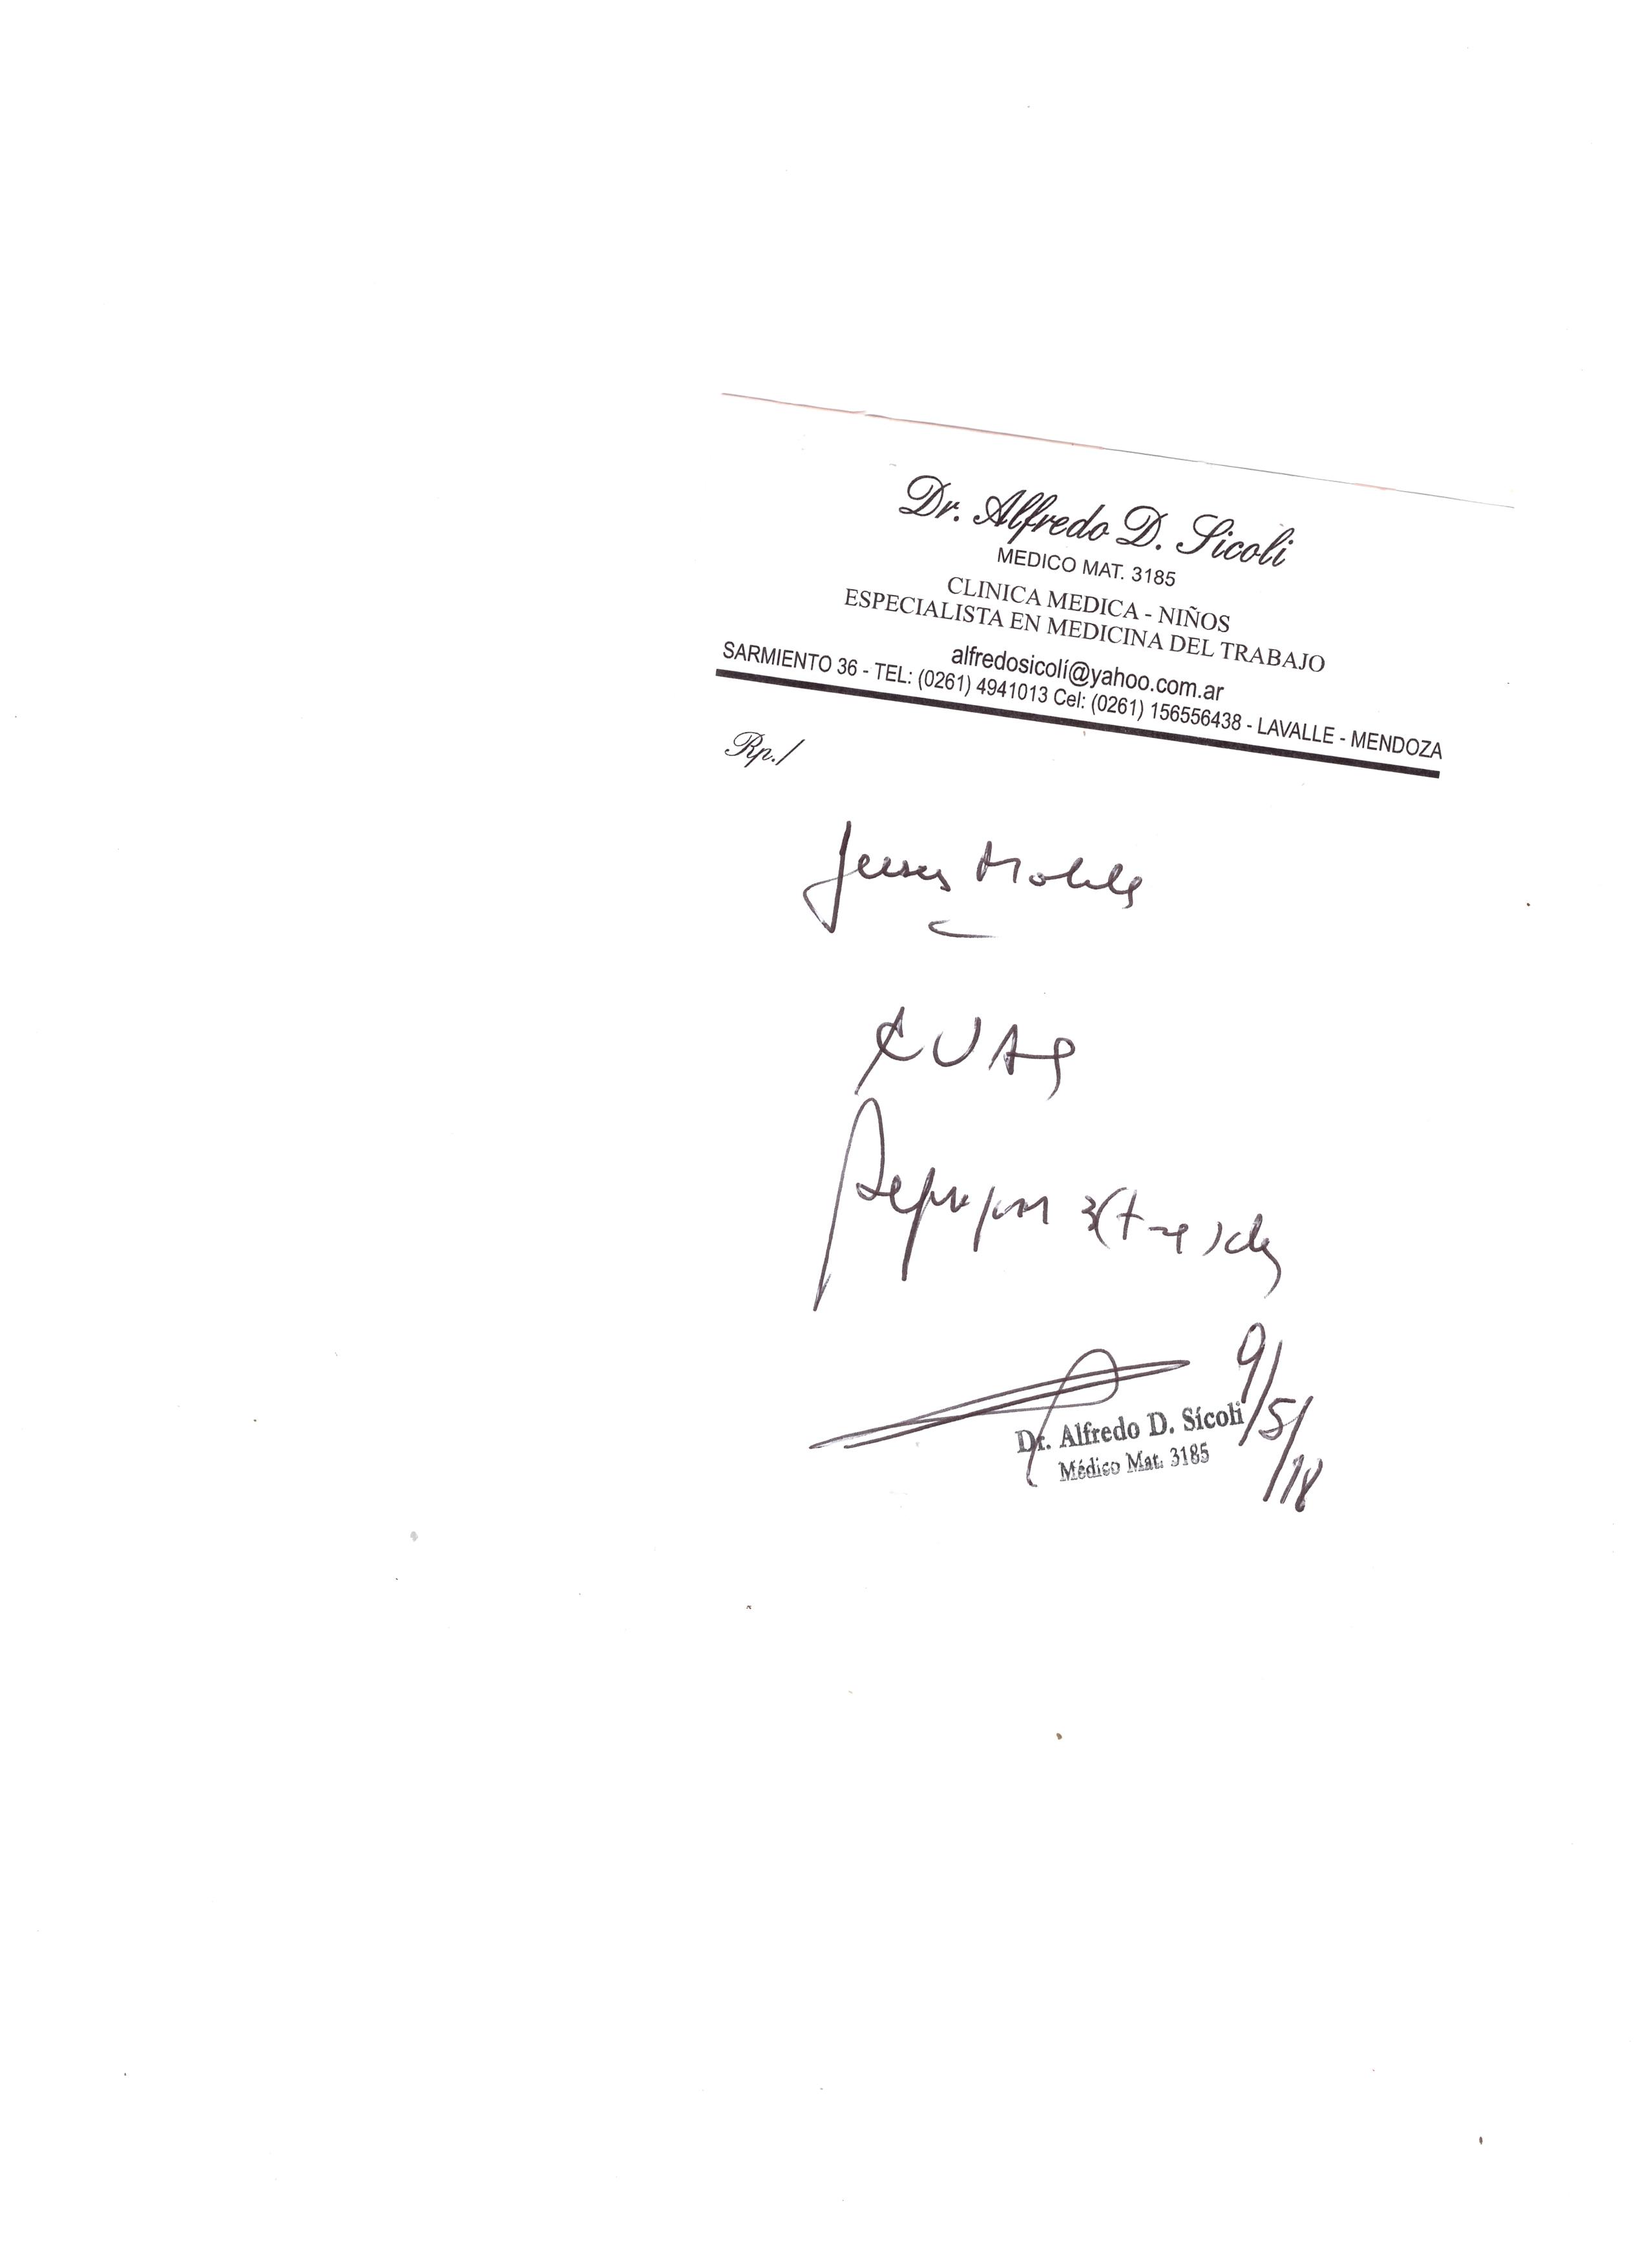 Dr. Alfredo D. Sicoli
MEDICO MAT. 3185
CLINICA MEDICA - NIÑOS
ESPECIALISTA EN MEDICINA DEL TRABAJO
alfredosicolí@yahoo.com.ar
SARMIENTO 36 - TEL: (0261) 4941013 Cel: (0261) 156556438 - LAVALLE - MENDOZA
Rp./
Jesus
3(tres)
9/5/18
Dr. Alfredo D. Sícoli
Médico Mat. 3185